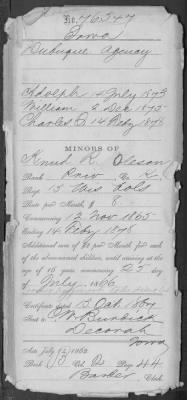 No. 76347
Iowa
Dubuque Agency
Adolph 14 July 1873
William 2 Dec 1875
Charles 14 Feby 1878
MINORS OF
Knud K. Oleson
Rank Priv Co. K
Reg't 15 Wis Vols
Rate per Month $ 8
Commencing 12 Nov 1865
Ending 14 Feby 1878
Additional sum of $2 per month for each
of the abovenamed children, until arriving at the
age of 16 years commencing 25 day
of July 1866
Certificate dated 15 Oct 1867
Sent to
Burdick
Decorah
Iowa
Act July
Book Vol. Page 44
Clerk.